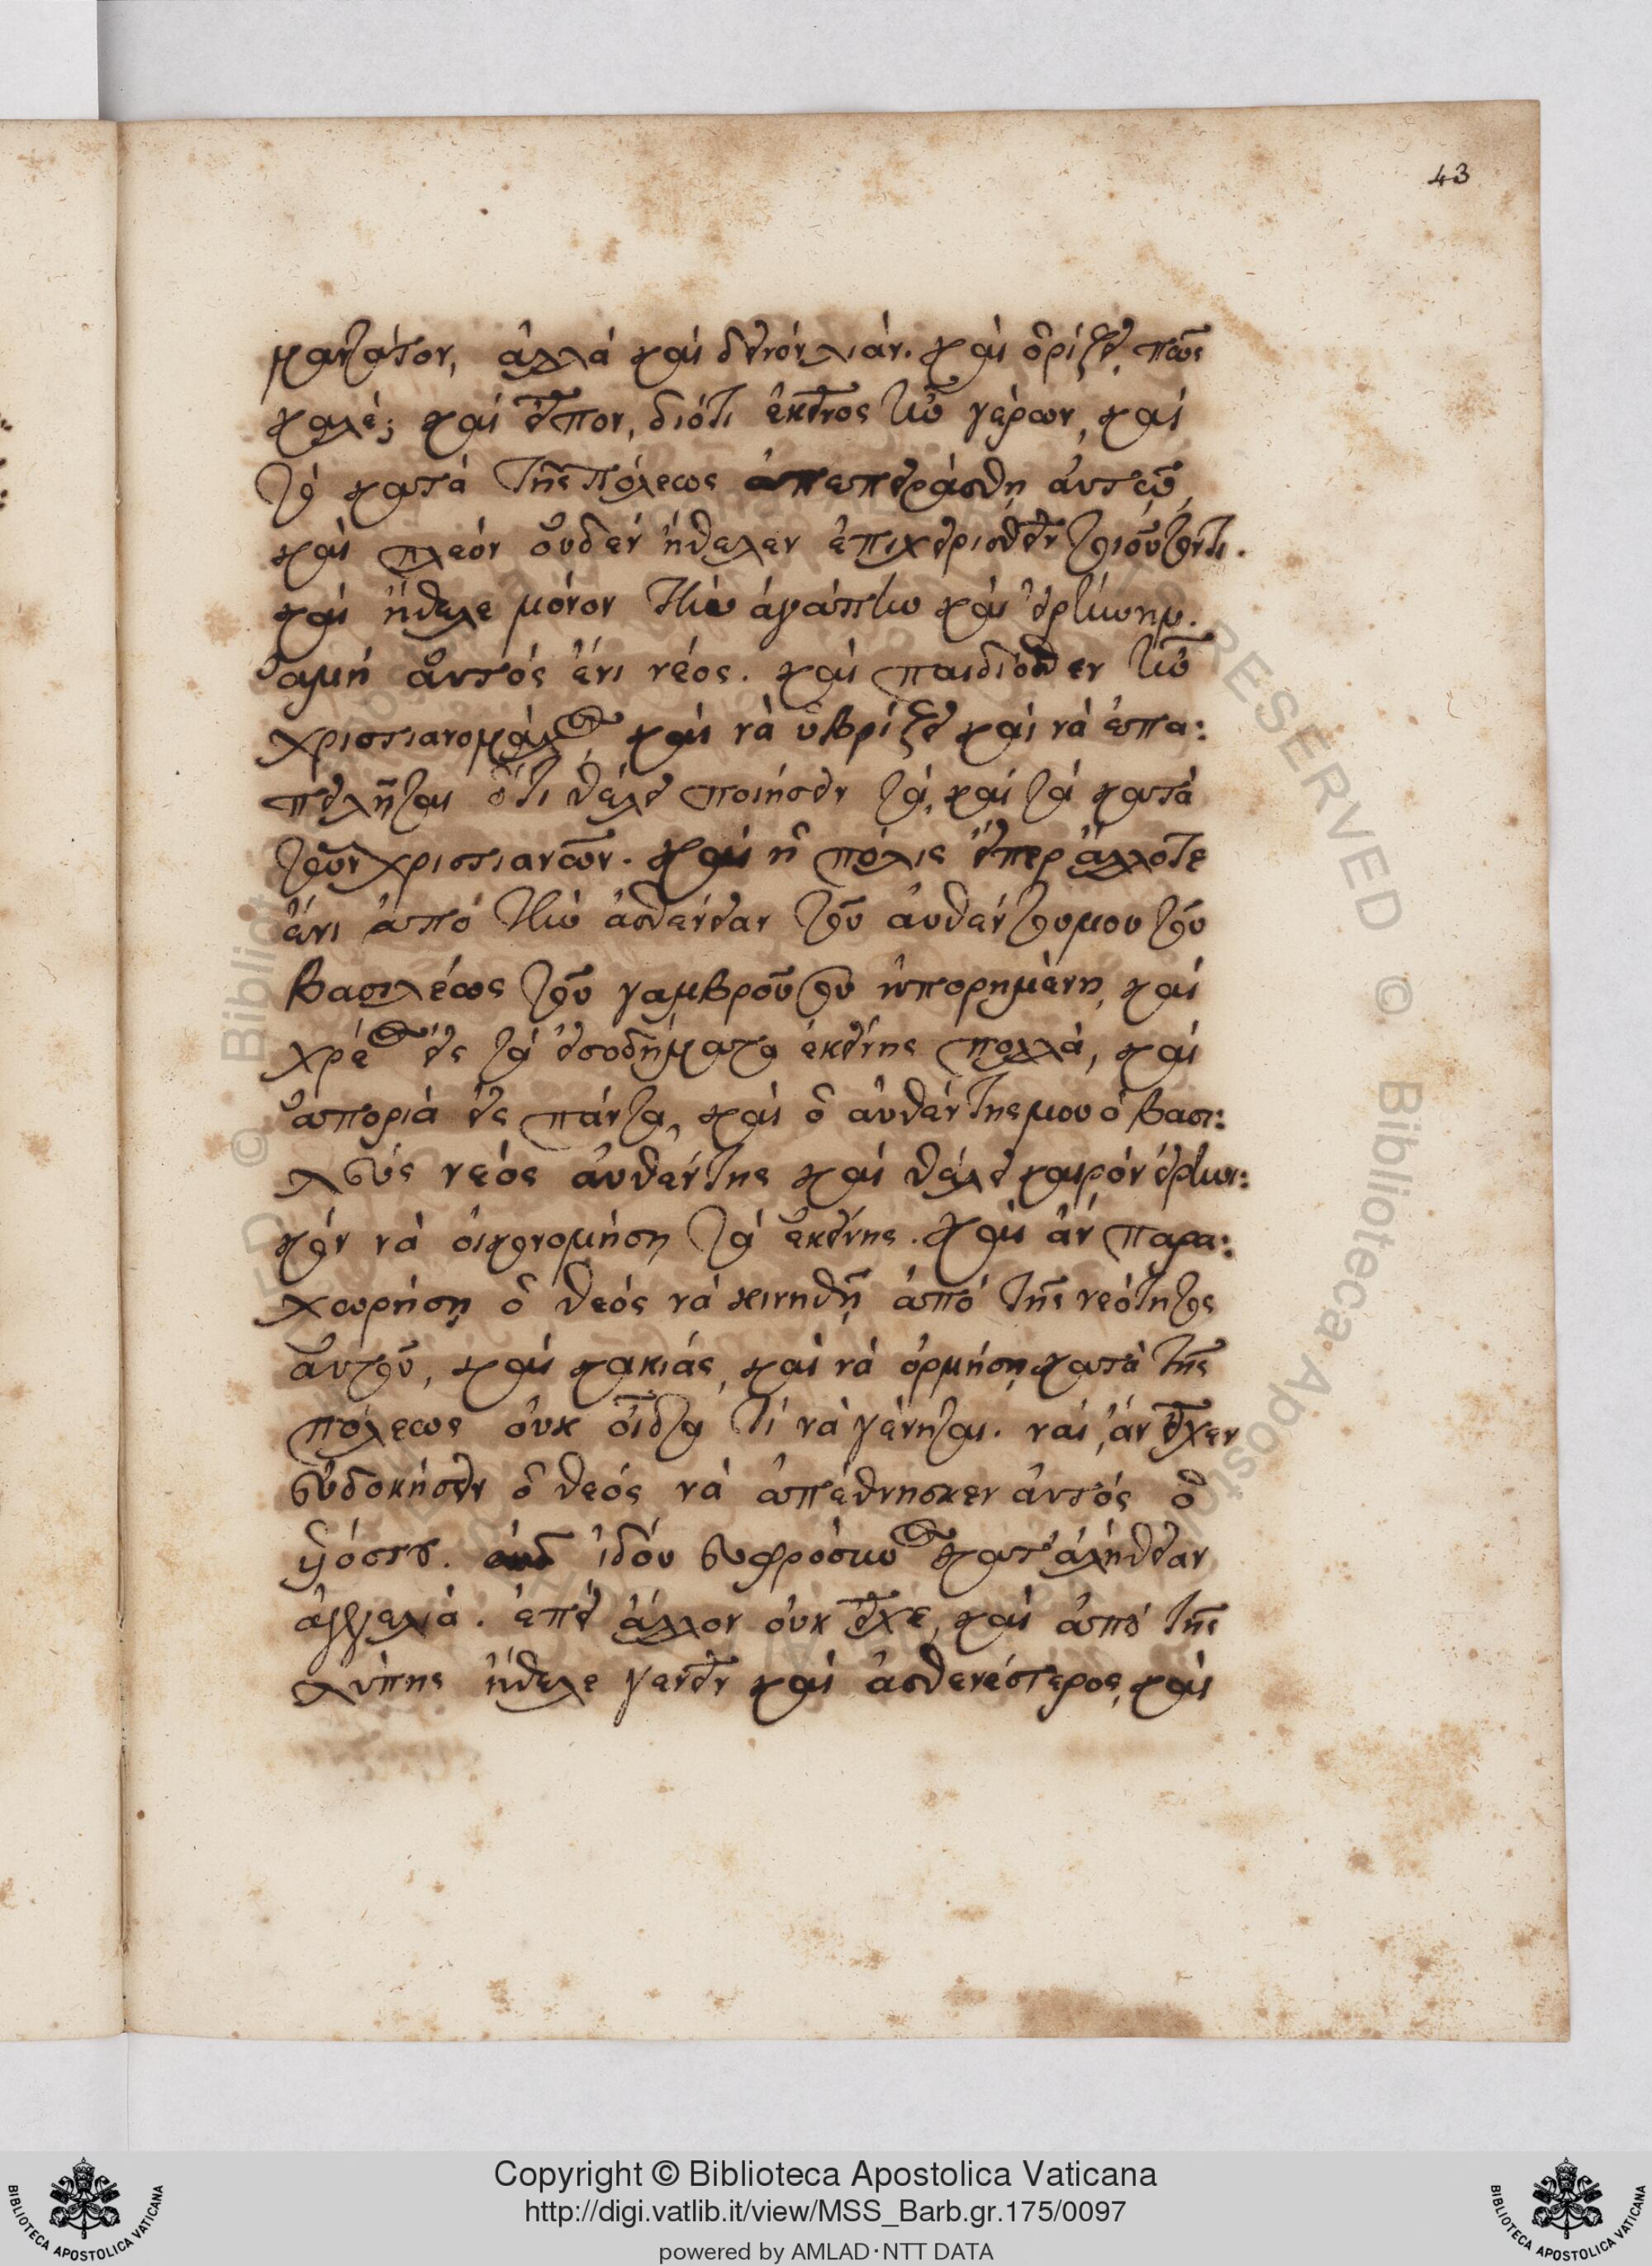 43
μαντάτον, ἀλλὰ καὶ δεινόν λιάν. καὶ ὁρίζει, πῶς
καλέ; καὶ εἶπον, διότι ἐκεῖνος ἦν γέρων, καὶ
τὸ κατὰ τῆς πόλεως ἀπεπειράσθη αὐτῷ,
καὶ πλέον οὐδὲν ἤθελεν ἐπιχειρισθεῖν τοιοῦτόν τι.
καὶ ἤθελε μόνον τὴν ἀγάπην καὶ εἰρήνην.
ἀμὴ αὐτός ἔνι νέος. καὶ παιδιόθεν ἦν
χριστιανομάχος καὶ νὰ ὑβρίζει καὶ νὰ ἐπα:
πειλῆται ὅτι θέλει ποιήσειν τὰ, καὶ τὰ κατὰ
τῶν χριστιανῶν. καὶ ἡ πόλις εἴπερ ἄλλοτε
ἔνι ἀπὸ τὴν ἀσθένειαν τοῦ αὐθέντου μου τοῦ
βασιλέως τοῦ γαμβροῦ σου ἠπορημένη, καὶ
χρέος εἰς τὰ εἰσοδήματα ἐκείνης πολλὰ, καὶ
ἀποριὰ εἰς πάντα, καὶ ὁ αὐθέντης μου ὁ βασι:
λεύς νέος αὐθέντης καὶ θέλει καιρόν εἰρηνι:
κόν νὰ οἰκονομήση τὰ ἐκείνης. καὶ ἂν παρα:
χωρήση ὁ θεός νὰ κινηθῇ ἀπὸ τῆς νεότητος
αὐτοῦ, καὶ κακιάς, καὶ νὰ ὁρμήση κατὰ τῆς
πόλεως οὐκ οἶδα τί νὰ γένηται. ναί, ἂν εἶχεν
εὐδοκήσειν ὁ θεός νὰ ἀπέθνησκεν αὐτός ὁ
υἱός του. ἰδού εὐφρόσυνος κατ' ἀλήθειαν
ἀγγελιά. ἐπεὶ ἄλλον οὐκ εἶχε, καὶ ἀπὸ τῆς
λύπης ἤθελε γενεῖν καὶ ἀσθενέστερος, καὶ
Copyright © Biblioteca Apostolica Vaticana
http://digi.vatlib.it/view/MSS_Barb.gr.175/0097
powered by AMLAD·NTT DATA
BIBLIOTECA APOSTOLICA VATICANA
BIBLIOTECA APOSTOLICA VATICANA